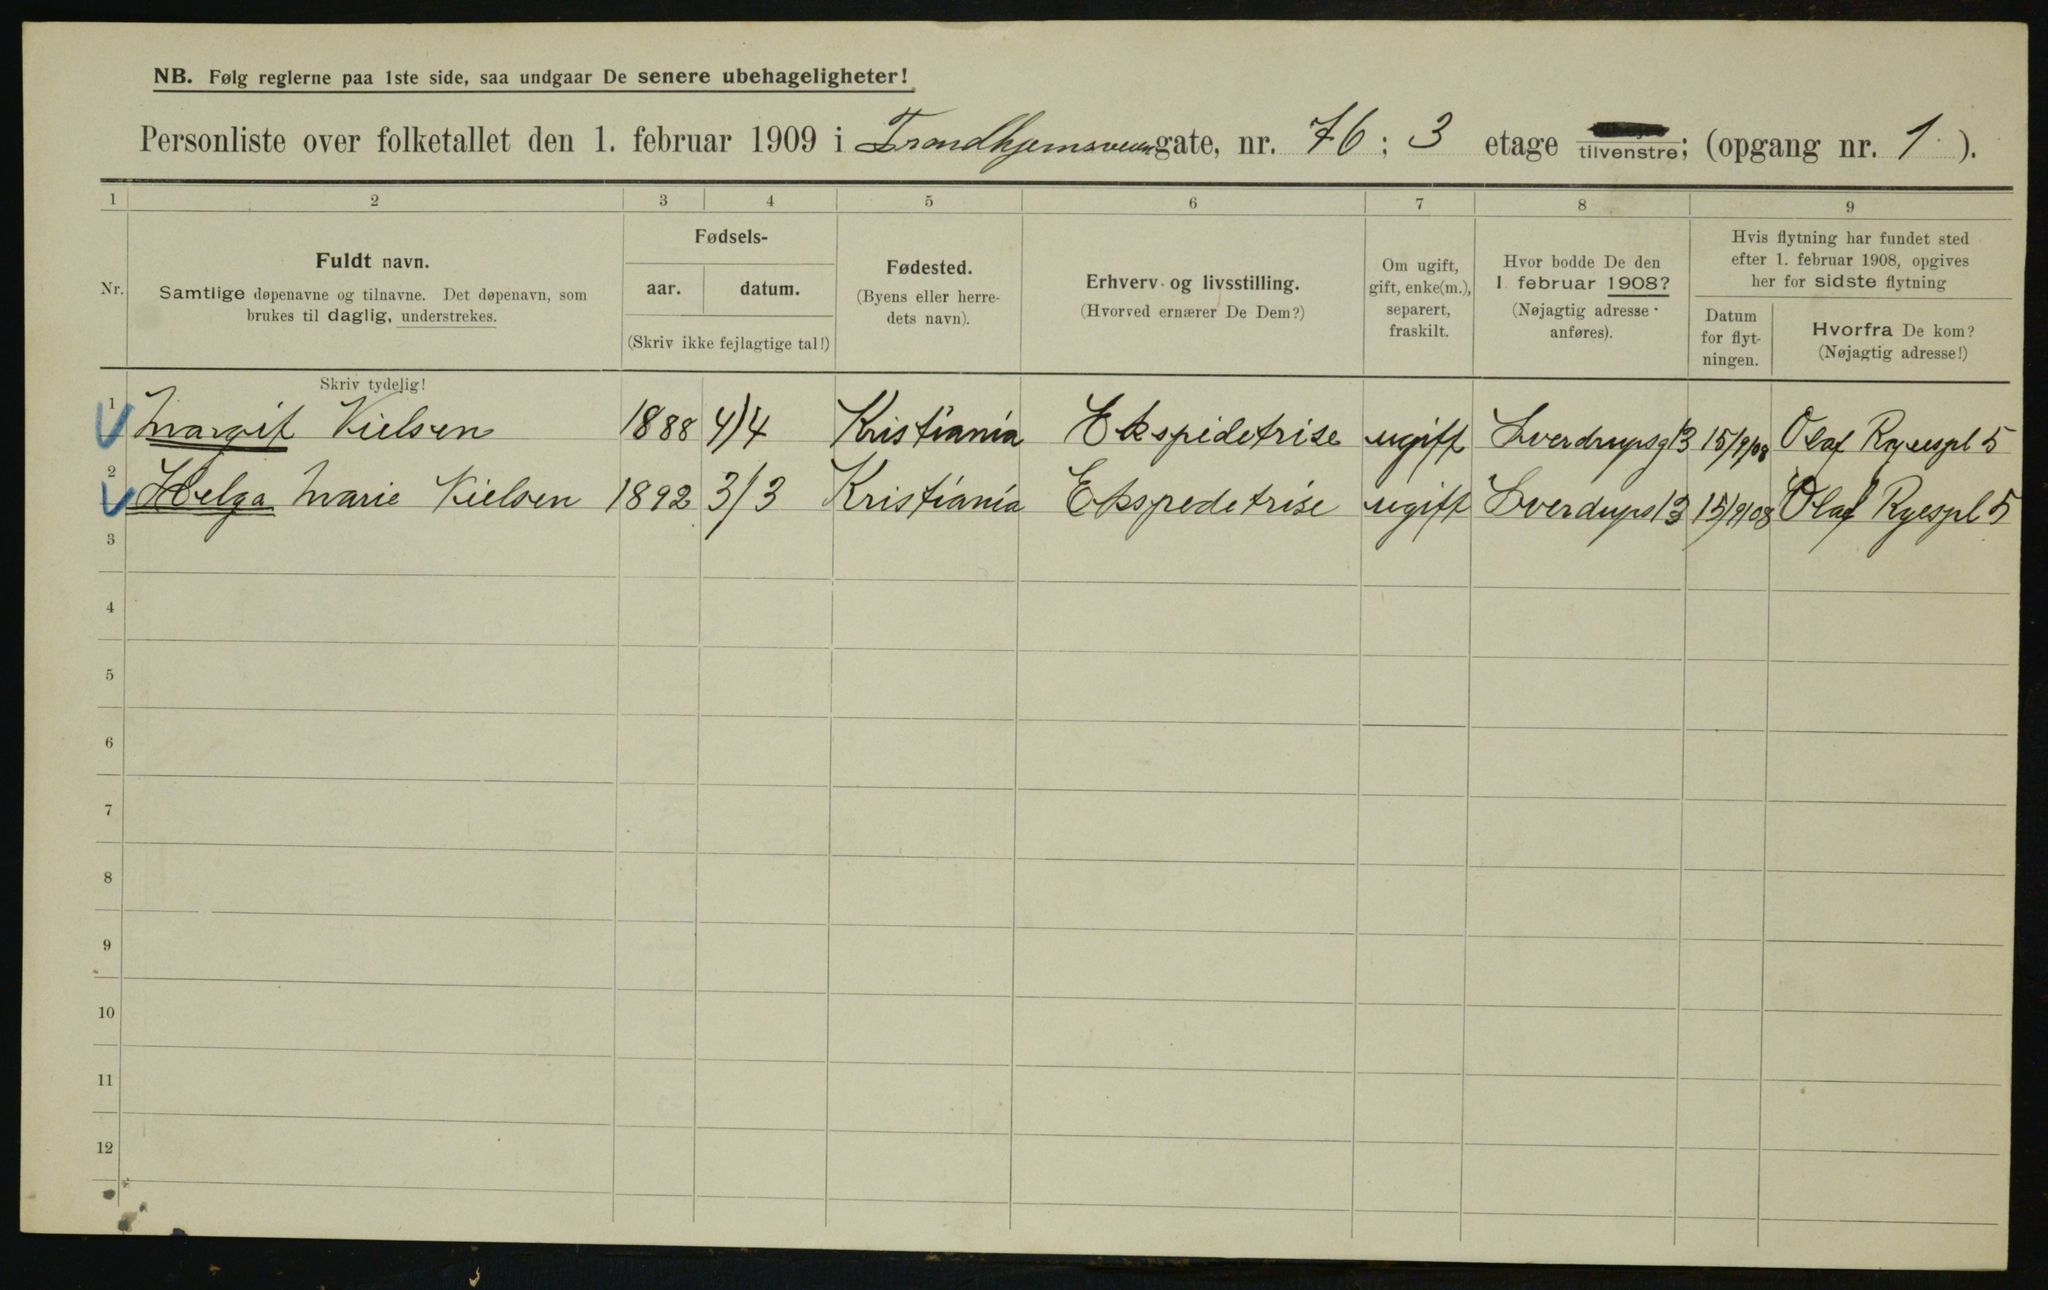 NB. Følg reglerne paa 1ste side, saa undgaar De senere ubehageligheter!
Personliste over folketallet den 1. februar 1909 i Trondhjemsveien gate, nr. 76 ; 3 etage tilvenstre; (opgang nr. 1 ).
1 2 3 4 5 6 7 8 9
Nr.
Fuldt navn.
Samtlige døpenavne og tilnavne. Det døpenavn, som
brukes til daglig, understrekes.
Fødsels-
aar. datum.
(Skriv ikke fejlagtige tal!)
Fødested.
(Byens eller herre-
dets navn).
Erhverv og livsstilling.
(Hvorved ernærer De Dem?)
Om ugift,
gift, enke(m.),
separert,
fraskilt.
Hvor bodde De den
1 februar 1908?
(Nøjagtig adresse
anføres).
Hvis flytning har fundet sted
efter 1. februar 1908, opgives
her for sidste flytning
Datum
for flyt-
ningen.
Hvorfra De kom?
(Nøjagtig adresse!)
Skriv tydelig!
1 Margit Nielsen 1888 4/4 Kristiania Ekspidetrise ugift Sverdrupsg 13 15/9/08 Olaf Ryespl 5
2 Helga Marie Nielsen 1892 3/3 Kristiania Ekspedetrise ugift Sverdups 13 15/9/08 Olaf Ryespl 5
3
4
5
6
7
8
9
10
11
12